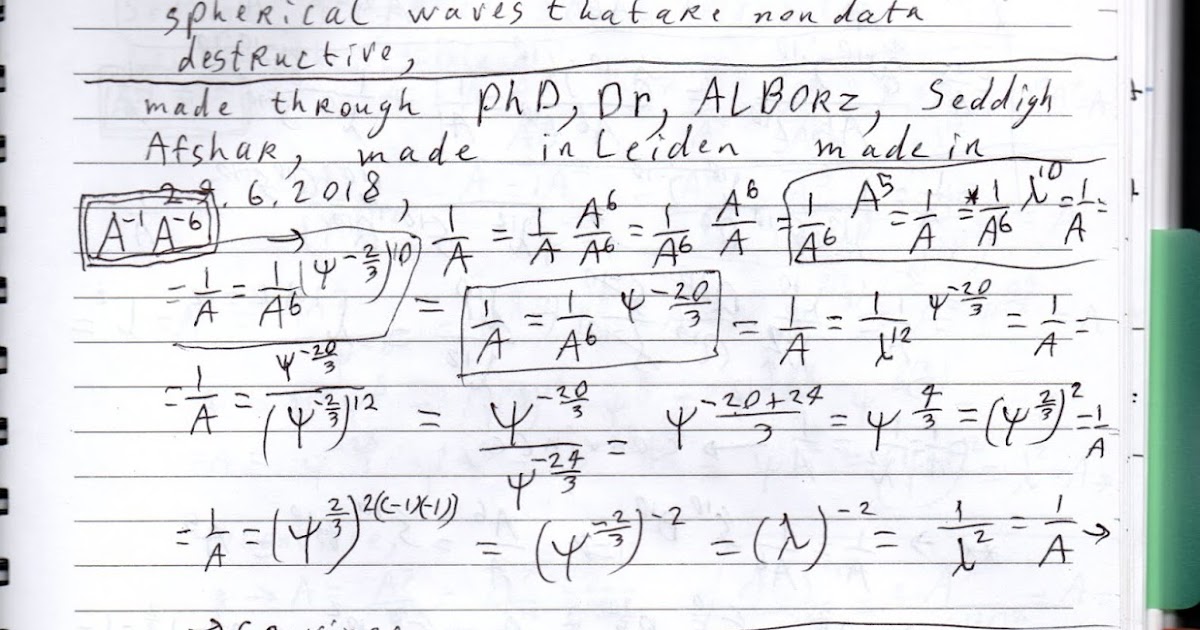 spherical waves that are non data
destructive,
made through phD, Dr, ALBORZ, Seddigh
Afshar, made in Leiden made in
29.6.2018,
A⁻¹A⁻⁶ → 1/A = 1/A A⁶/A⁶ = 1/A⁶ A⁶/A = 1/A⁶ A⁵ = 1/A = 1/A⁶ λ¹⁰ = 1/A =
= 1/A = 1/A⁶ (ψ^(-2/3))^10 = 1/A = 1/A⁶ ψ^(-20/3) = 1/A = 1/λ¹² ψ^(-20/3) = 1/A =
= 1/A = ψ^(-20/3) / (ψ^(-2/3))^12 = ψ^(-20/3) / ψ^(-24/3) = ψ^((-20+24)/3) = ψ^(4/3) = (ψ^(2/3))^2 = 1/A
= 1/A = (ψ^(2/3))^(2(-1)(-1)) = (ψ^(-2/3))^(-2) = (λ)^(-2) = 1/λ² = 1/A →